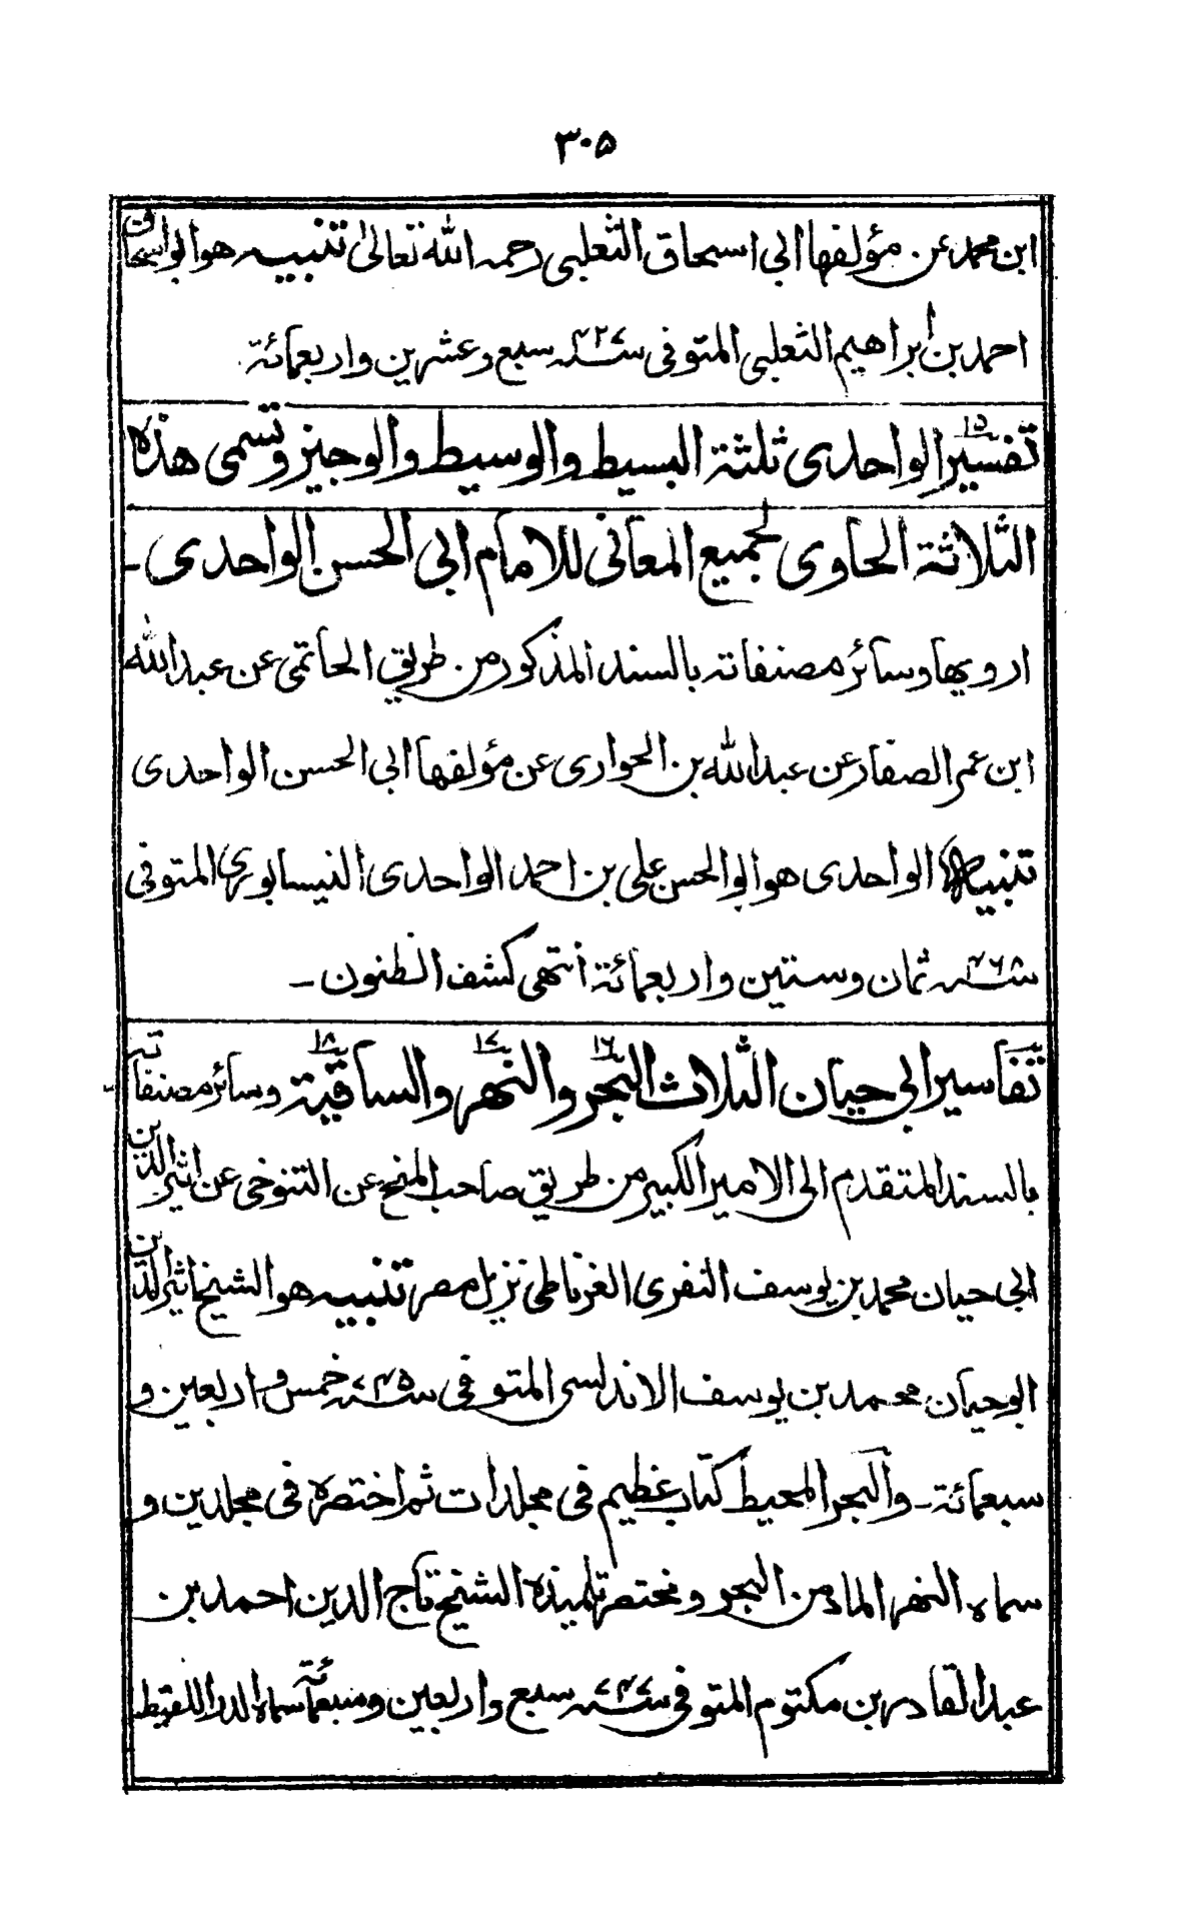 ٣٠٥
ابن محمد عن مؤلفها ابی اسحاق الثعلبی رحمه الله تعالیٰ تنبیه هو ابو اسحاق
احمد بن ابراهیم الثعلبی المتوفی سنه ٤٢٧ سبع وعشرین واربعمائة
تفسیر الواحدی ١٥ ثلثة البسیط والوسیط والوجیز وتسمی هذه
الثلاثة الحاوی لجمیع المعانی للامام ابی الحسن الواحدی ۔
ارویها وسائر مصنفاته بالسند المذکور من طریق الحاتمی عن عبد الله
ابن عمر الصفار عن عبد الله بن الحواری عن مؤلفها ابی الحسن الواحدی
تنبیه الواحدی هو ابو الحسن علی بن احمد الواحدی النیسابوری المتوفی
سنه ٤٦٨ ثمان وستین واربعمائة انتهی کشف الظنون ۔
تفاسیر ابی حیان الثلاث البحر ١٦ والنهر ١٧ والساقیة ١٨ وسائر مصنفاته
بالسند المتقدم الی الامیر الکبیر من طریق صاحب المنح عن التنوخی عن اثیر الدین
ابی حیان محمد بن یوسف النفری الغرناطی نزیل مصر تنبیه هو الشیخ اثیر الدین
ابو حیان محمد بن یوسف الاندلسی المتوفی سنه ٧٤٥ خمس واربعین و
سبعمائة ۔ والبحر المحیط کتاب عظیم فی مجلدات ثم اختصره فی مجلدین و
سماه النهر الماد من البحر ومختصر تلمیذه الشیخ تاج الدین احمد بن
عبد القادر بن مکتوم المتوفی سنه ٧٤٧ سبع واربعین وسبعمائة سماه الدر اللقیط